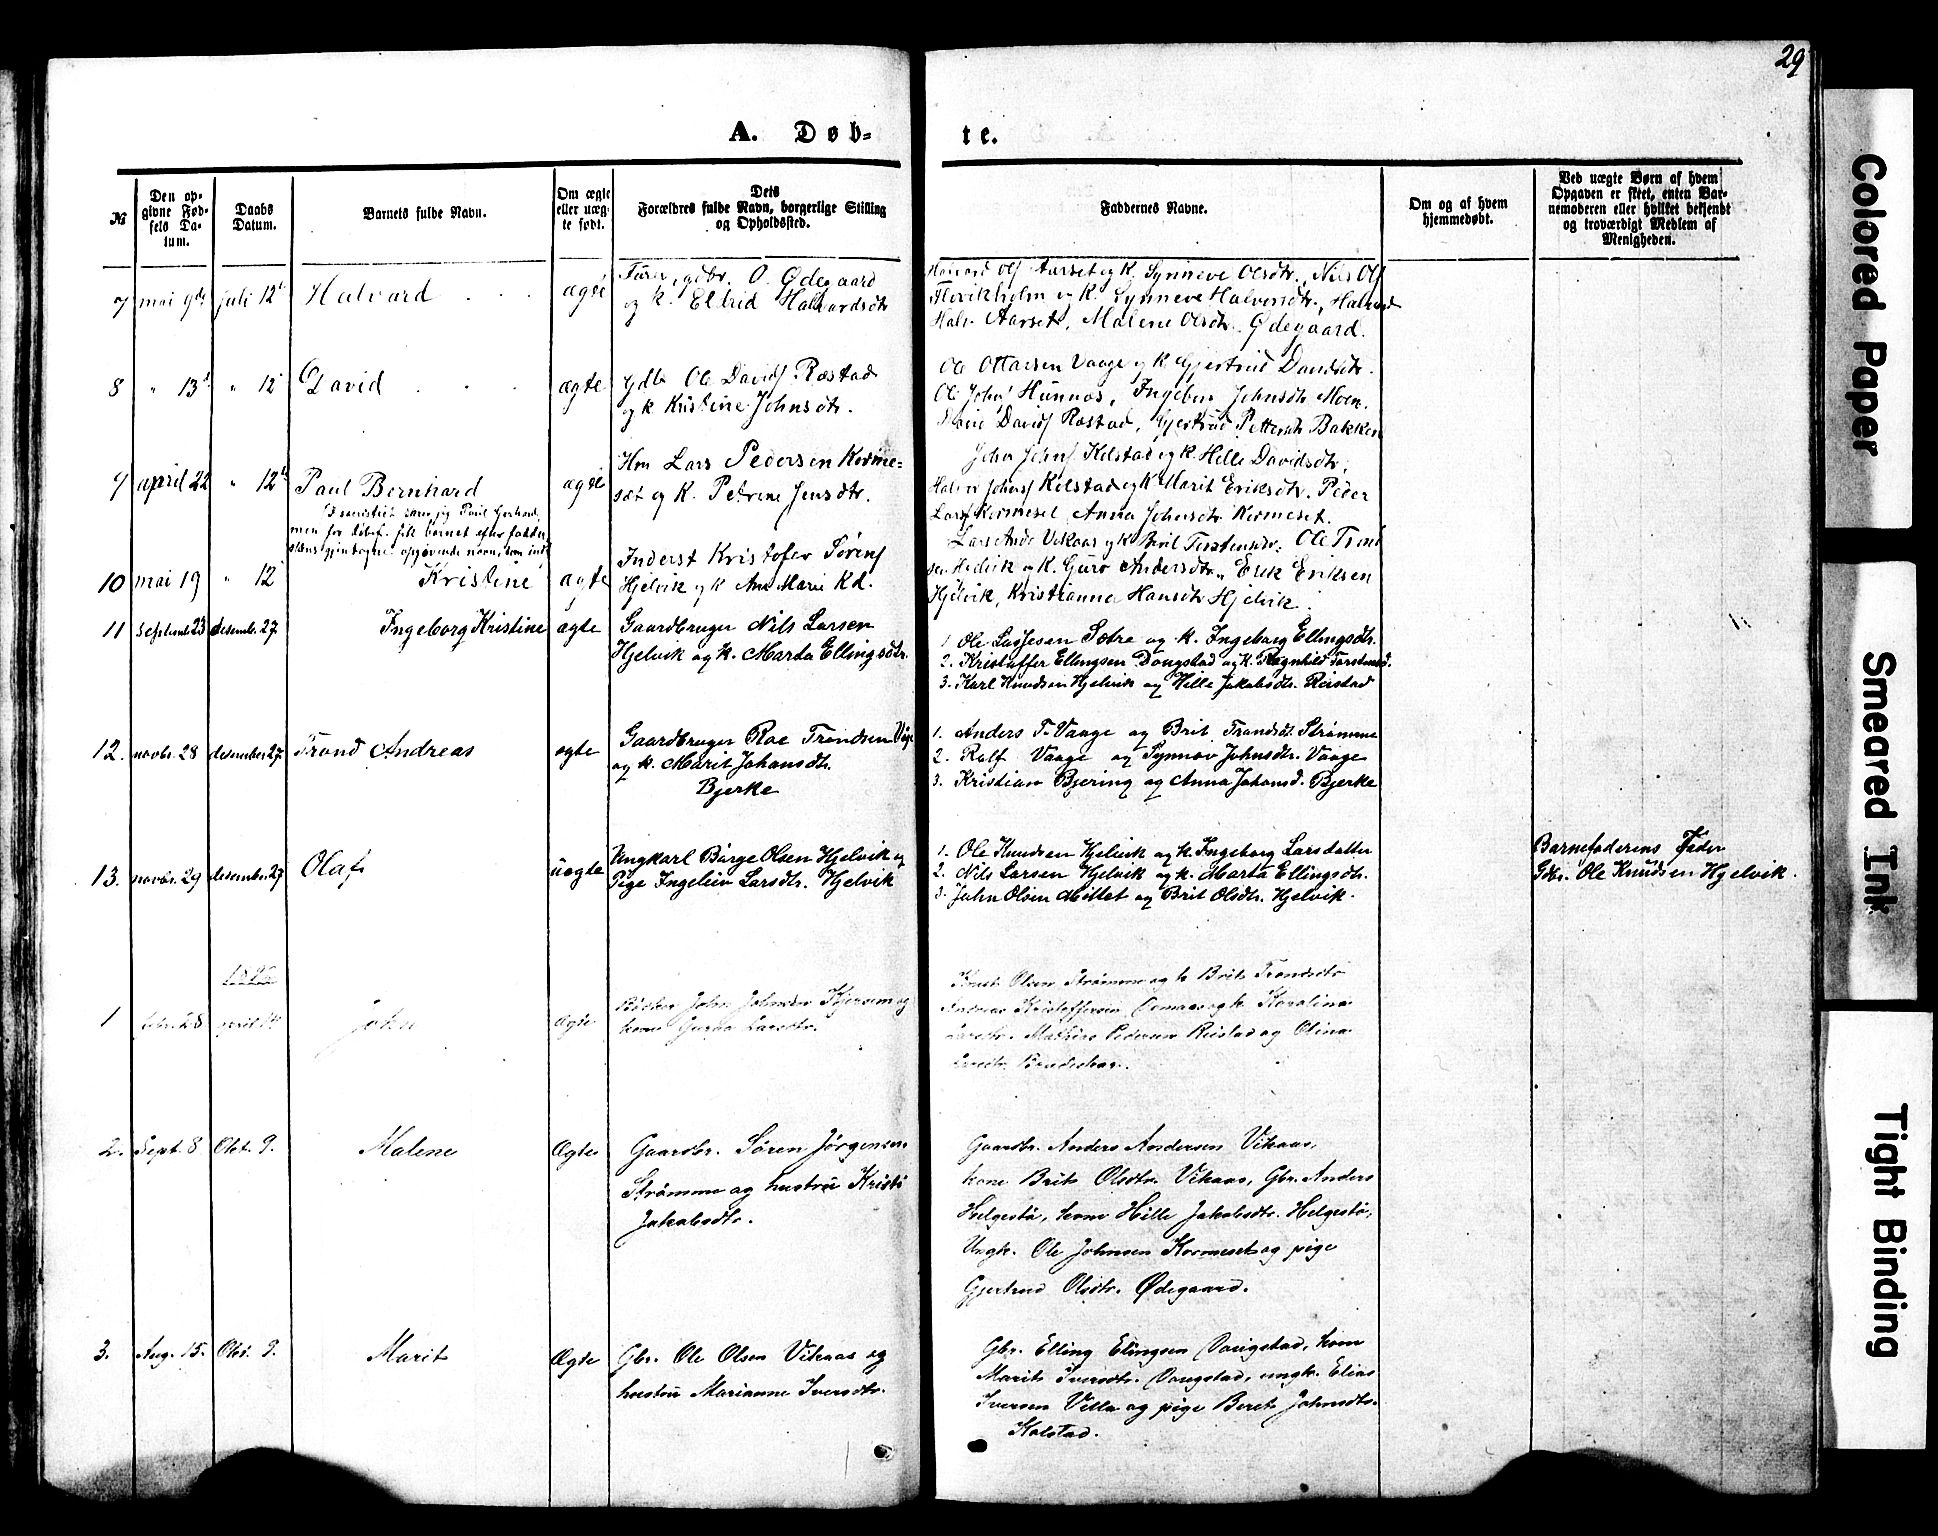 29
A. Døb-
te.
№
Den op-
givne Fød-
sels Da-
tum.
Daabs
Datum.
Barnets fulde Navn.
Om ægte
eller uæg-
te født.
Dets
Forældres fulde Navn, borgerlige Stilling
og Opholdssted.
Faddernes Navne.
Om og af hvem
hjemmedøbt.
Ved uægte Børn af hvem
Opgaven er skeet, enten Bar-
nemoderen eller hvilket bekjendt
og troværdigt Medlem af
Menigheden.
7 mai 9de juli 12te Halvard ægte
gdbr. O. Ødegaard
og k. Eldrid Halvardsdtr
Halvard Ols Aarset og k. Synneve Olsdtr., Nils Ols
Flovikholm og k. Synneve Halvorsdtr., Halvard
Halv. Aarset, Malene Olsdtr. Ødegaard.
8 " 13de " 12 David ægte
gdbr Ole Davids. Ræstad
og k Kristine Johnsdtr.
Ole Ottarsen Vaage og k Gjertrud Davidsdtr.
Ole Johns Hunnæs, Ingebor Johnsdtr Moen.
Davids Ræstad, Gjertrud Pettersdtr Bakken
9 april 22 " 12te Paul Bernhard ægte
men for døbef. fik barnet efter fadder
Hm Lars Pedersen Korme-
sæt og k. Petrine Jensdtr.
John Johns Kolstad og k. Hille Davidsdtr,
Halvor Johns Kolstad og k Marit Eriksdtr. Peder
Lars Kormeset, Anna Johnsdtr Kormeset.
10 mai 19 " 12 Kristine ægte
Inderst Kristofer Sørens
Hjelvik og k Ane Marie Kd.
Lars Ande Vikaas og k Brit Torstensdr. Ole Tron
sen Hedvik og k. Guro Andersdtr., Erik Eriksen
Hjelvik, Kristianna Hansdtr Hjelvik.
11 septemb 23 desemb. 27 Ingeborg Kristine ægte
Gaardbruger Nils Larsen
Hjelvik og k. Marta Ellingsdtr.
1. Ole Lassesen Sætre og k. Ingeborg Ellingsdtr.
2. Kristoffer Ellingsen Dongstad og k. Ragnhild Torstensd.
3. Karl Knudsen Hjelvik og Hille Jakobsdtr. Reistad
12. novbr. 28 desember 27 Trond Andreas ægte
Gaardbruger Roe Trondsen
og k. Marit Johansdtr.
Bjerke
1. Anders T. Vaage og Brit Trondsd. Strømme
2. Rolf Vaage og Synnøv Johnsdtr. Vaage
3. Kristian Bjering og Anna Johansd. Bjerke
13. novbr. 29 desember 27 Olaf uægte
Ungkarl Børge Olsen Hjelvik og
Pige Ingeleiv Larsdtr. Hjelvik
1. Ole Knudsen Hjelvik og k. Ingeborg Larsdatter
2. Nils Larsen Hjelvik og k. Marta Ellingsdtr.
3. John Olsen Mittet og Brit Olsdtr. Hjelvik.
Barnefaderens Fader
Gdbr. Ole Knudsen Hjelvik.
1 febr. 28 april John Ægte
John Johnsen Kjersem og
kone Guroa Larsdtr.
Knut Olsen Strømme og k Brit Trondsdtr
Andreas Kristoffersen og k Karolina
Larsdtr. Mathias Pedersen Reistad og Olina
2. Sept. 8 Okt. 9. Malene Ægte
Gaardbr. Søren Jørgensen
Strømme og hustru Kristi
Jakobsdtr.
Gaardbr. Anders Andersen Vikaas,
kone Brit Olsdtr. Vikaas, Gbr. Anders
Helgestø, kone Hille Jakobsdtr. Helgestø,
Ungk. Ole Johnsen Kormeset og pige
Gjertrud Olsdtr. Ødegaard.
3. Aug. 15. Okt. 9. Marit Ægte
Gbr. Ole Olsen Vikaas og
hustru Marianne Iversdtr.
Gbr. Elling Elingsen Dongstad, kone
Marit Iversdtr. Dongstad, ungk. Elias
Iversen Villa og pige Beret Johnsdtr.
Kolstad.
Colored Paper
Smeared Ink
Tight Binding